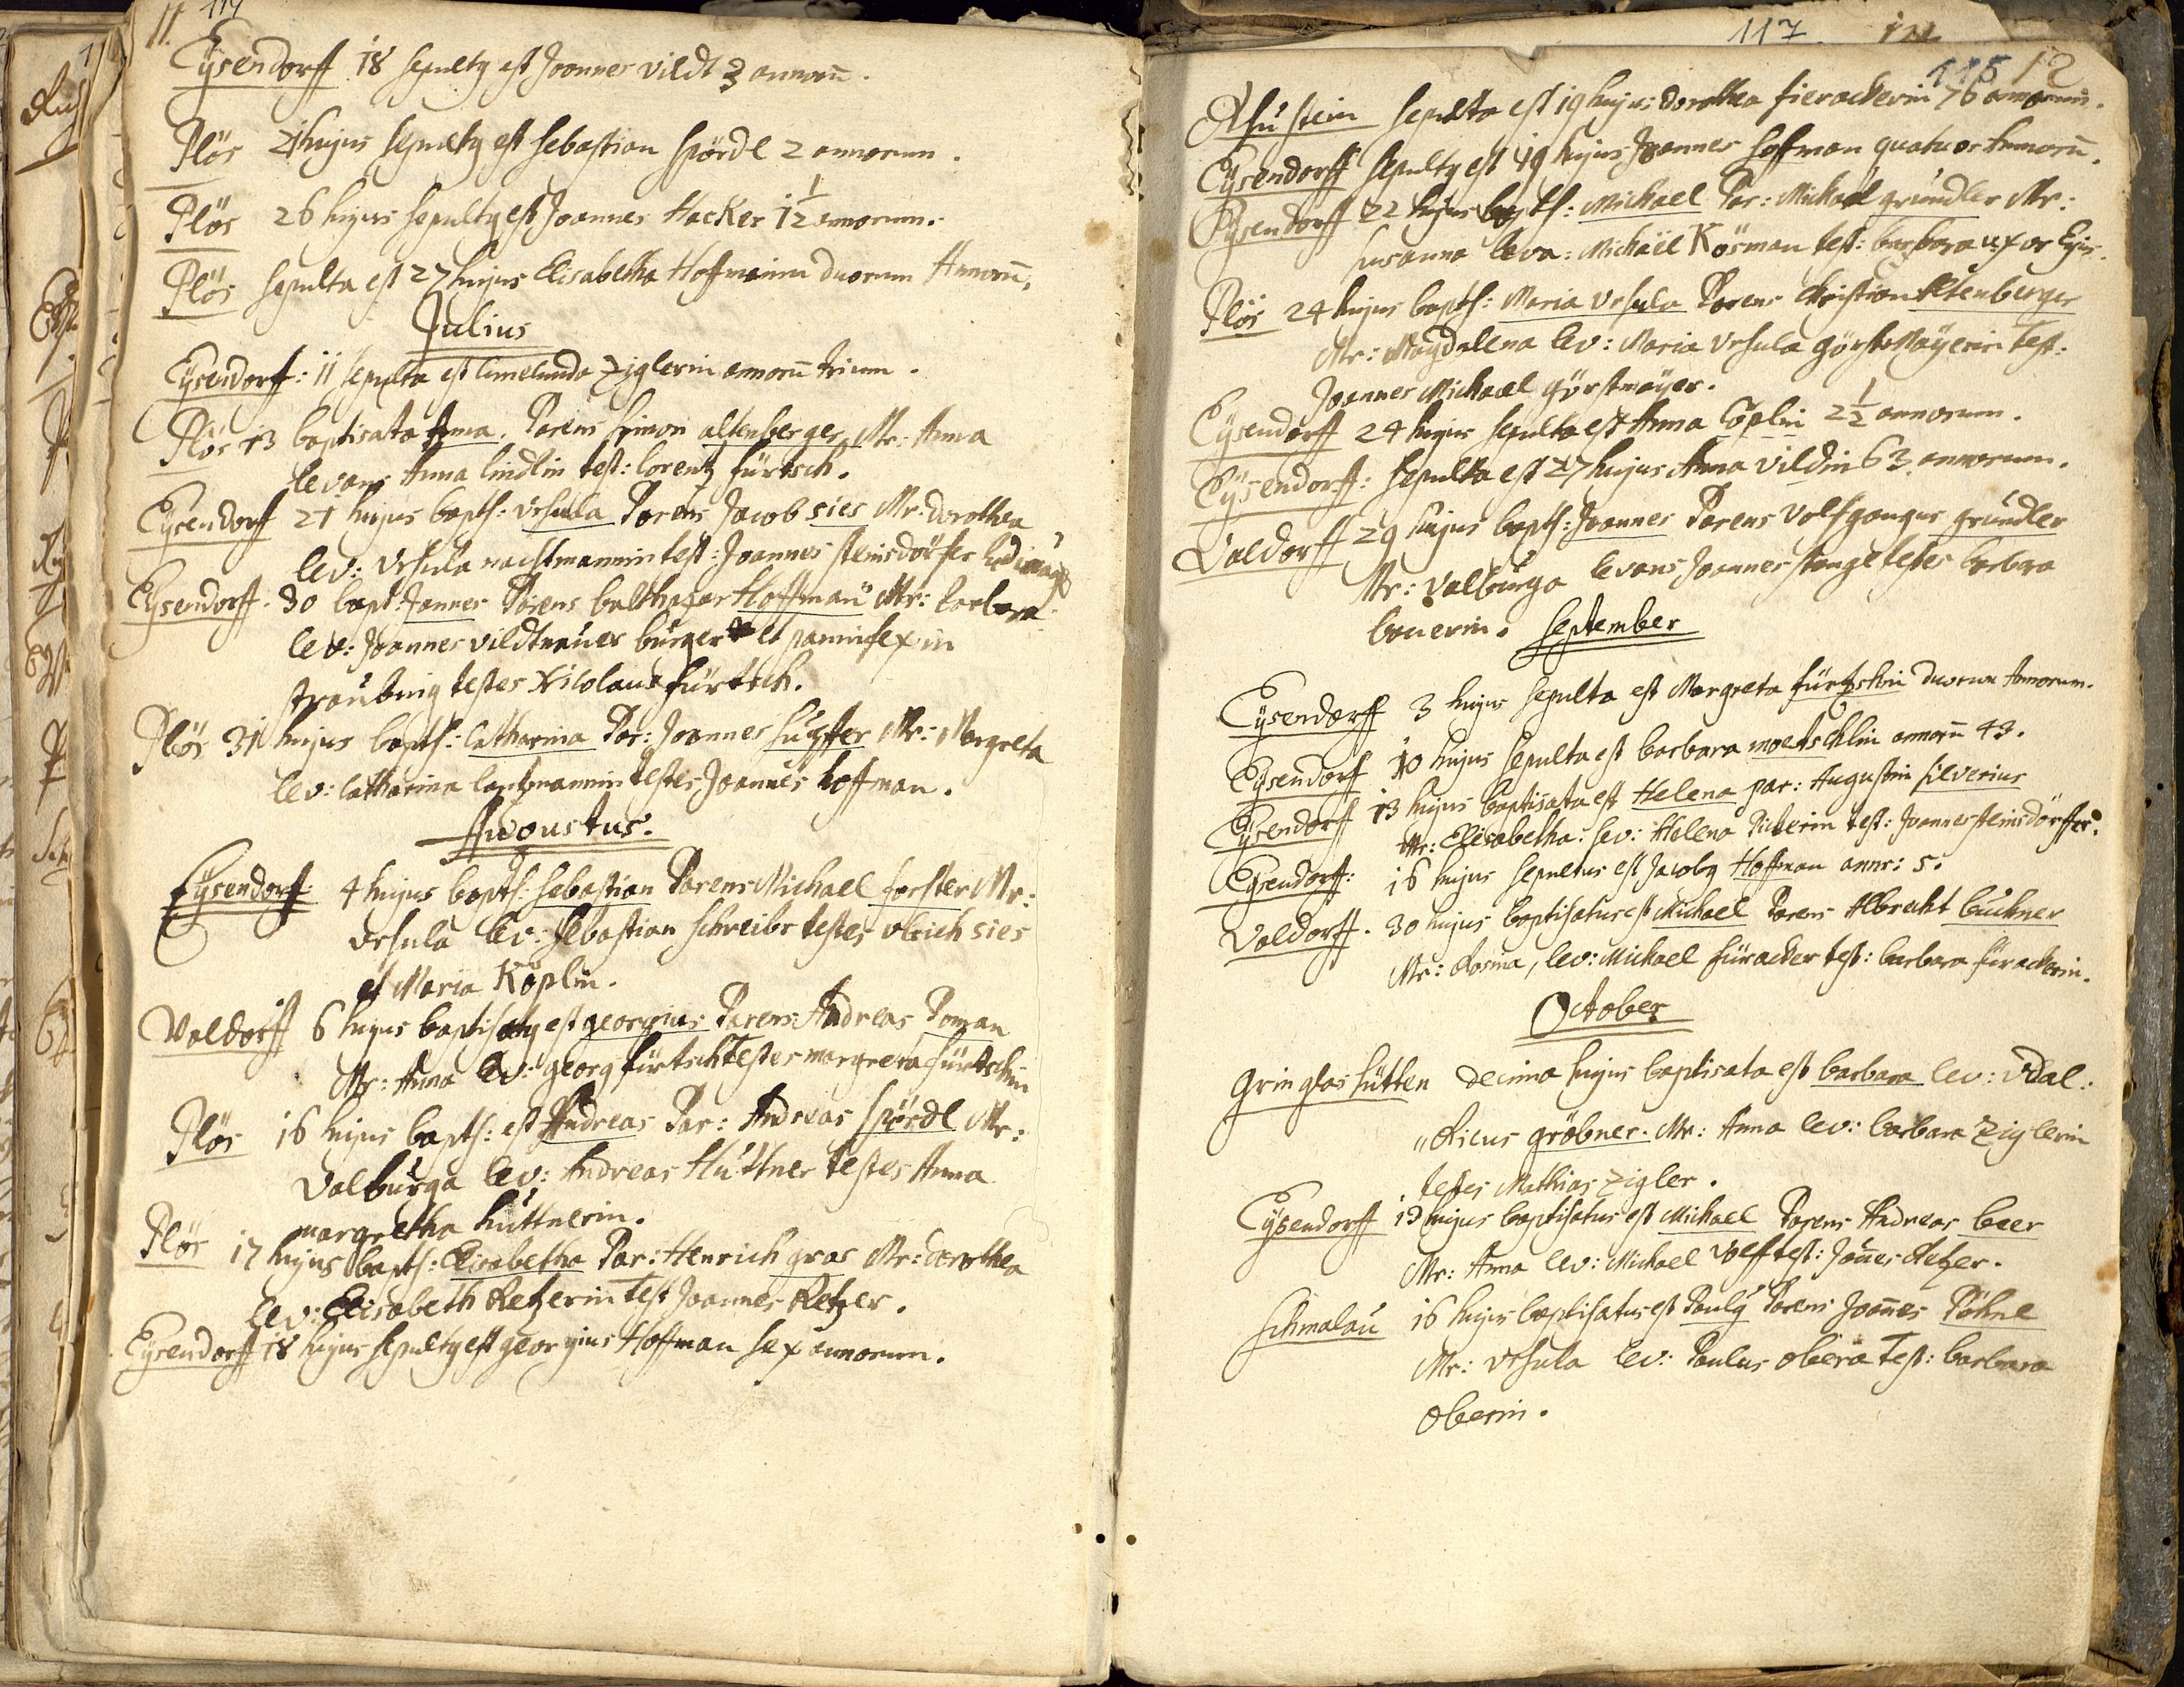 11. 114
Eysendorff 18 sepultg est Joannes vildt 3 annorū.
Plös 21 hujus sepultg est sebastian spördl 2 annorum.
Plös 26 hujus sepultg est Joannes Hacker 1 1/2 annorum.
Plös sepulta est 27 hujus Elisabetha Hoffmanin duorum Annorū.
Julius
Eysendorff: 11 sepulta est Ziglerin annorū trium.
Plös 13 baptisata Anna. Parens simon altenberger Mr: Anna
levans Anna lindlin test: lorentz fürtsch.
Eysendorff 21 hujus bapts: Vrsula Parens Jacob sies Mr: dorothea
lev: Vrsula nachtmannin test: Joannes steinsdörfer
Eysendorff. 30 bapt: Jannes Parens balthasar Hoffman Mr: barbara
lev: Joannes vildtnauer burger et pannifex in
straubing testes Nicolaus fürtsch.
Plös 31 hujus bapts: Catharina Par: Joannes Mr: Margreta
lev: Catharina testes Joannes hoffman.
Augustus.
Eysendorff 4 hujus bapts: sebastian Parens Michael forster Mr:
vrsula lev: sebastian schreibr testes vlrich sies
et Maria Köplin.
Valdorff 6 hujus baptisatg est georgius Parens Andreas Poman
Mr: Anna lev: georg fürtsch Testes margreta fürtschin
Plös 16 hujus bapts: est Andreas Par: Andreas spördl Mr:
Valburga lev: Andreas Hüttner testes Anna
margretha hüttnerin.
Plös 17 hujus bapts: Elisabetha Par: Henrich gras Mr: dorothea
lev: Elisabeth Retzerin Test Joannes Retzer.
Eysendorff 18 hujus sepultg est georgius Hoffman sex annorum.
117 115 12
sepulta est 19 hujus dorothea fierackerin 76 annorum.
Eysendorff sepultg est 19 hujus Joannes hoffman quatuor Annorū.
Eysendorff 22 hujus bapts: Michael Par: Michael gründler Mr:
susanna leva: Michäel Kösman test: barbara uxor Ejus.
Plös 24 hujus bapts: Maria Vrsula Parens Christian Altenberger
Mr: Magdalena lev: Maria Vrsula görstmäyerin test:
Joannes Michael görstmayer.
Eysendorff 24 hujus sepulta est Anna Cöplin 2 1/2 annorum.
Eysendorff: sepulta est 27 hujus Anna vildin 63 annorum.
Valdorff 29 hujus bapts: Joannes Parens Volfgangus gründler
Mr: Valburga levans Joannes stenge testes barbara
bruerin. September
Eysendorff 3 hujus sepulta est Margreta fürtschin duorum Annorum.
Eysendorf 10 hujus sepulta est barbara moetschlin annorū 43.
Eysendorf 13 hujus baptisata est Helena par: Augustin silverius
Mr: Elisabetha: lev: Helena test: Joannes steinsdörffer.
Eysendorff: 16 hujus sepultus est Jacobg Hoffman annr: 5.
Valdorff. 30 hujus baptisatus est Michael Parens Albrecht buckner
Mr: Rosina, lev: Michael füracker test: barbara fürackerin.
October
Grin glas hütten decima hujus baptisata est barbara lev: Vdal:
„ricus gröbner. Mr: Anna lev: barbara Ziglerin
testes Mathias Zigler.
Eysendorff 13 hujus baptisatus est Michael Parens Andreas beer
Mr: Anna lev: Michael Volff test: Joñes Retzer.
Schmalau 16 hujus baptisatus est Paulg Parens Joañes Pöhne
Mr: Vrsula lev: Paulus obera Test: barbara
Oberin.